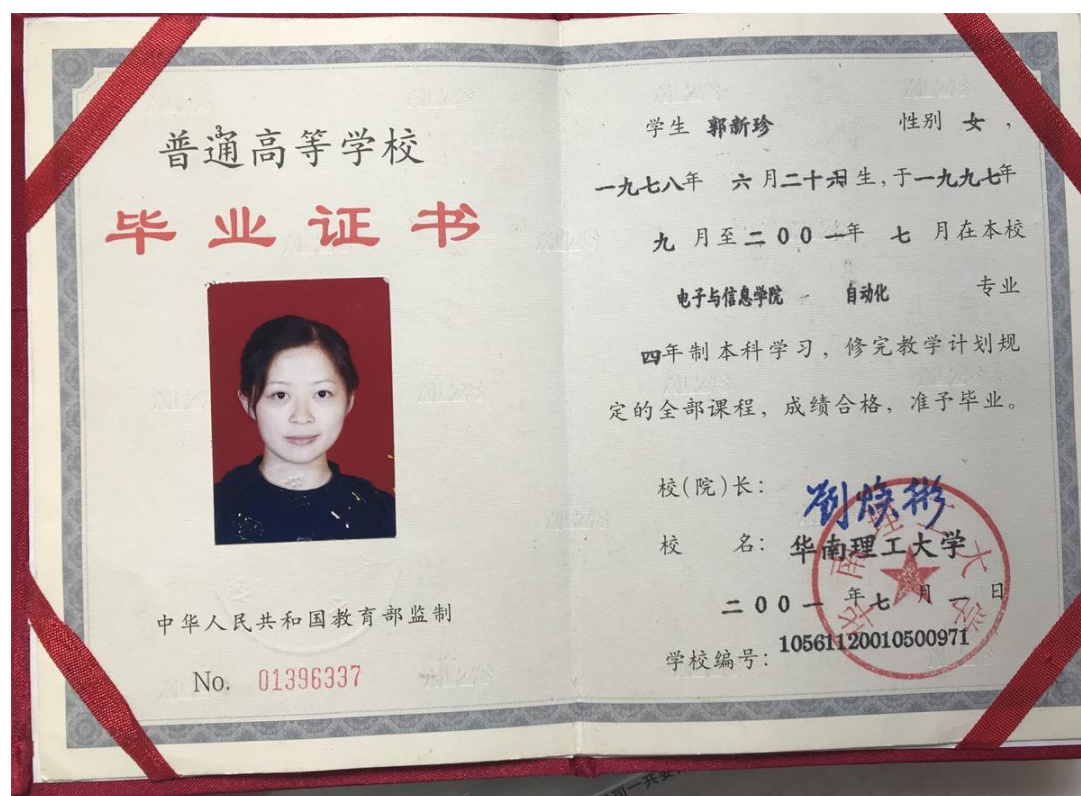 普通高等学校
毕业证书
中华人民共和国教育部监制
No. 01396337
学生 郭新珍 性别 女，
一九七八年 六月二十 生，于一九九七年
九月至二00一年 七 月在本校
电子与信息学院 自动化 专业
四年制本科学习，修完教学计划规
定的全部课程，成绩合格，准予毕业。
校(院)长： 劉焕彬
校 名： 华南理工大学
二00一年七月一日
学校编号： 10561120010500971
华南理工大学